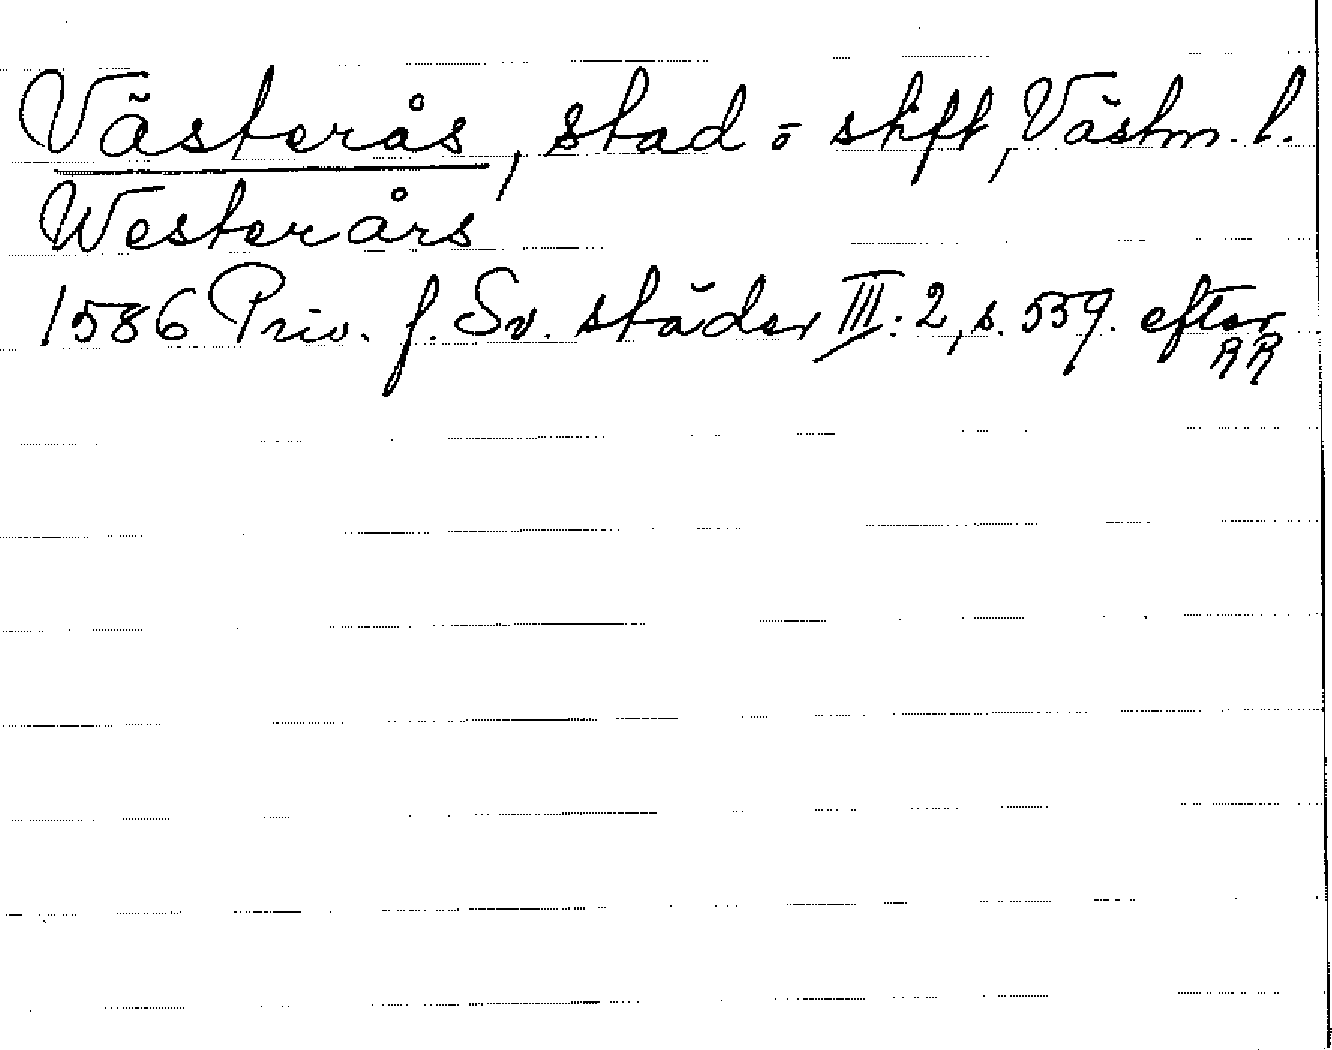 Västerås, stad o stift, Västm. l.
Westerårs
1586 Priv. f. Sv. städer III:2, s. 559. efter
RR